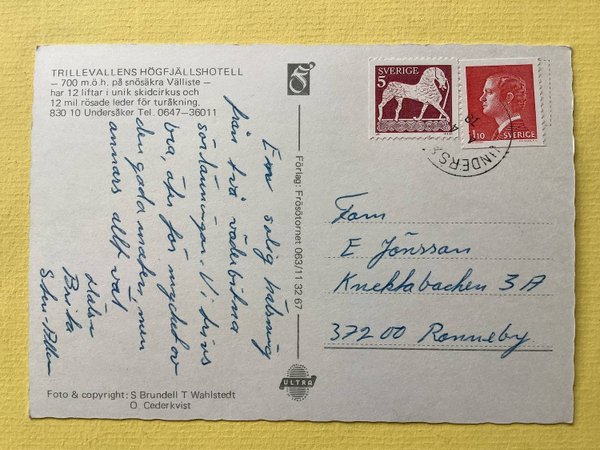 TRILLEVALLENS HÖGFJÄLLSHOTELL
– 700 m.ö.h. på snösäkra Välliste –
har 12 liftar i unik skidcirkus och
12 mil rösade leder för turåkning.
830 10 Undersåker Tel. 0647–36011
En solig hälsning
från två väderbitna
sörlänningar. Vi trivs
bra, äter för mycket av
den goda maten, men
annars allt väl
Brita
Förlag: Frösötornet 063/11 32 67
ULTRA
Foto & copyright: S Brundell T Wahlstedt
O Cederkvist
5 SVERIGE
1.10 SVERIGE
UNDERS
Fam
E Jönsson
Knektabacken 3 A
372 00 Ronneby